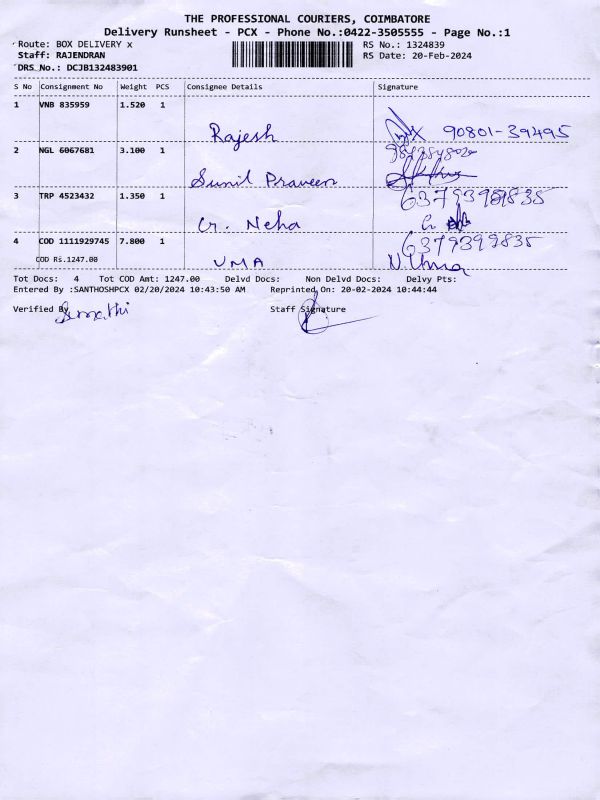 THE PROFESSIONAL COURIERS, COIMBATORE
Delivery Runsheet - PCX - Phone No.:0422-3505555 - Page No.:1
Route: BOX DELIVERY x RS No.: 1324839
Staff: RAJENDRAN RS Date: 20-Feb-2024
DRS No.: DCJB132483901
S No Consignment No Weight PCS Consignee Details Signature
1 VNB 835959 1.520 1
Rajesh 90801-39495
2 NGL 6067681 3.100 1
Sunil Praveen
3 TRP 4523432 1.350 1
G. Neha
4 COD 1111929745 7.800 1 6379399835
COD Rs.1247.00 UMA V. Uma
Tot Docs: 4 Tot COD Amt: 1247.00 Delvd Docs: Non Delvd Docs: Delvy Pts:
Entered By :SANTHOSHPCX 02/20/2024 10:43:50 AM Reprinted On: 20-02-2024 10:44:44
Verified By Staff Signature